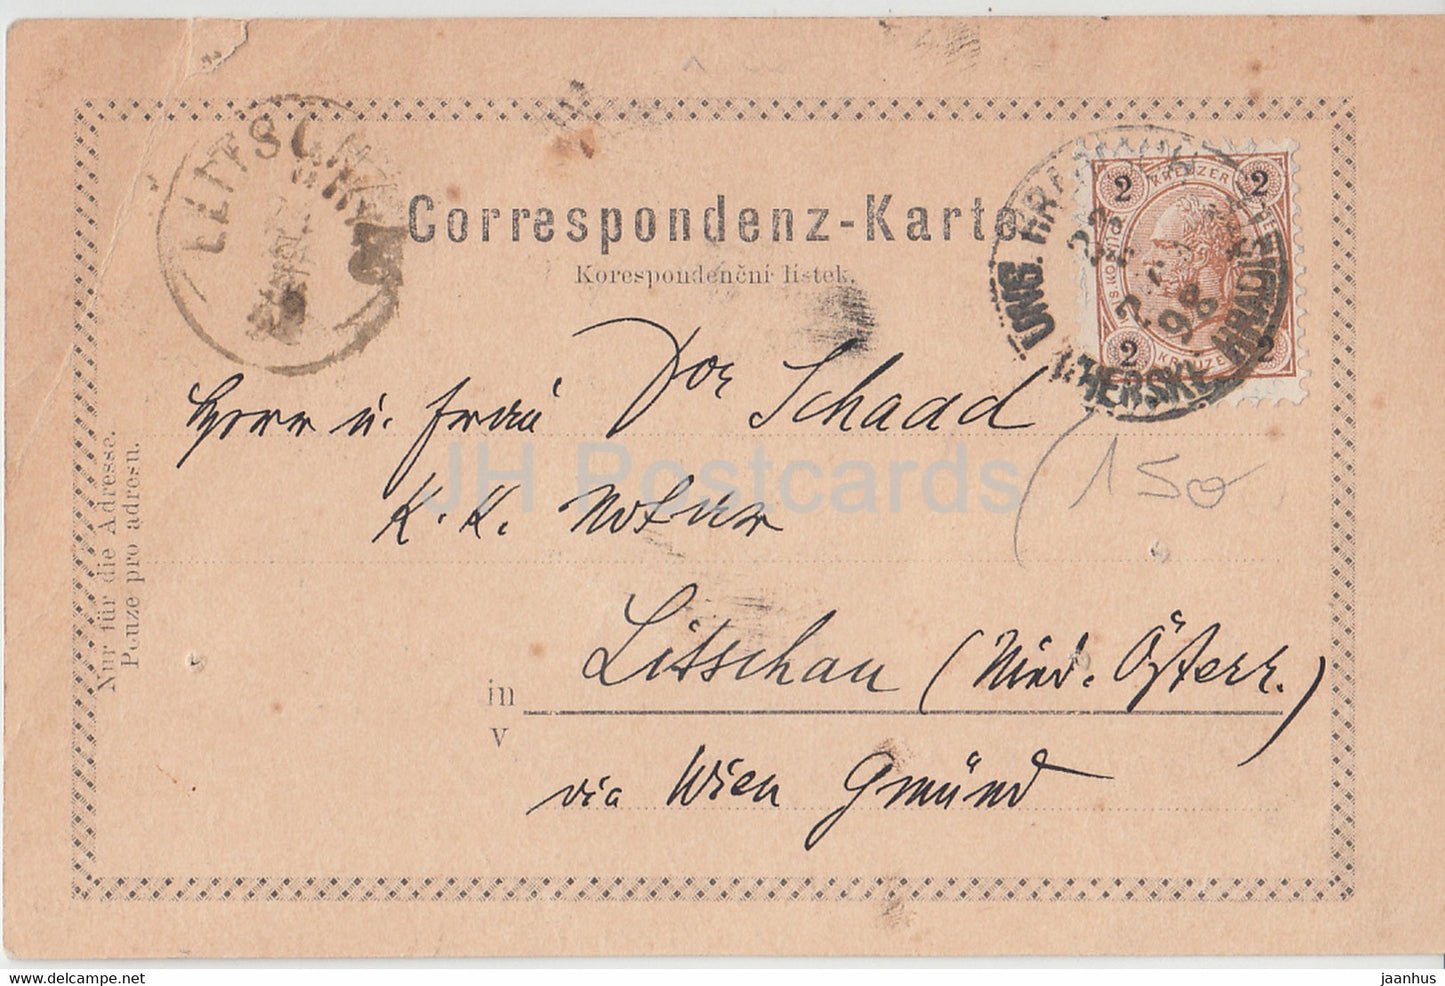 Correspondenz-Karte
Korespondenční lístek.
LEITSCHAU
UNG. HRADISCH
UHERSKÉ HRADIŠTĚ
98
2 KREUZER 2
2 KREUZER 2
Herr u. Frau Dor Schaad
K. K. Notar
(150
in Litschau (Nied. Österr.)
v
via Wien Gmünd
Nur für die Adresse.
Pouze pro adresu.
JH Postcards
https://www.geki.life/
jaanhus